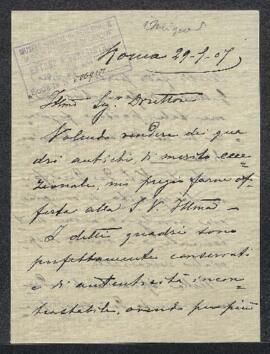 Roma 29-9-07
Illmo Sig. Direttore
Volendo vendere dei qua
dri antichi, di merito ecce
zionale, mi pregio farne of
ferta alla S. V. Illma -
I detti quadri sono
perfettamente conservati
e di autenticità incon
trastabile, avendo per più